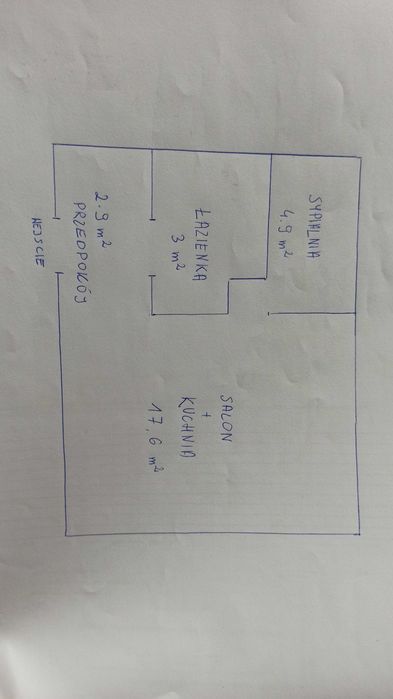 SYPIALNIA
4.9 m²
ŁAZIENKA
3 m²
2.9 m²
PRZEDPOKÓJ
WEJŚCIE
SALON
+
KUCHNIA
17,6 m²